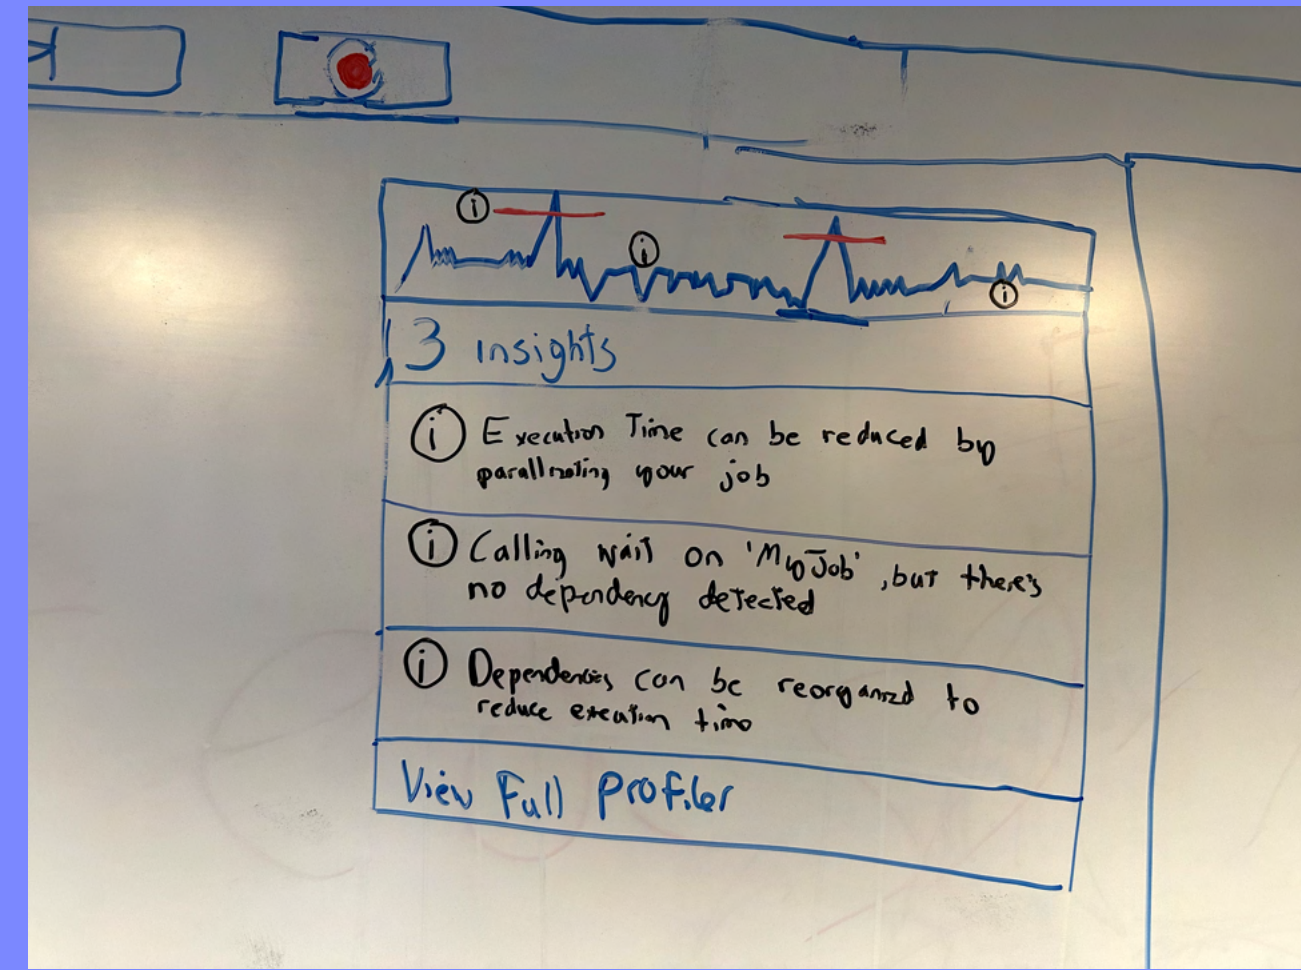 3 insights
i Execution Time can be reduced by
parallmoting your job
i Calling wait on 'MyJob', but there's
no dependency detected
i Dependencies can be reorganized to
reduce execution time
View Full Profiler